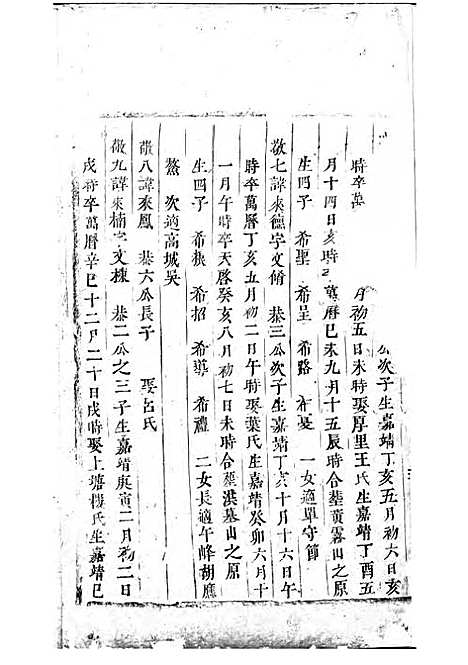 公次子生嘉靖丁亥五月初六日亥
時卒萬 月初五日未時娶厚里王氏生嘉靖丁酉五
月十四日亥時 萬曆己未九月十五辰時合塟黄露山之原
生四子 希聖 希呈 希路 希憂 一女適單守節
敬七諱來德字文脩 恭三公次子生嘉靖丁亥十月十六日午
時卒萬曆丁亥五月二日午時娶葉氏生嘉靖癸卯六月十
一月午時卒天啓癸亥八月初七日未時合塟洪基山之原
生四子 希棋 希招 希導 希禮 二女長適午峰胡應
鰲 次適高城吴
敬八諱來鳳 恭六公長子 娶呂氏
敬九諱來楠字文棟 恭二公之三子生嘉靖庚寅二月初二日
戌時卒萬曆辛巳十二月二十日戌時娶上塘樓氏生嘉靖己